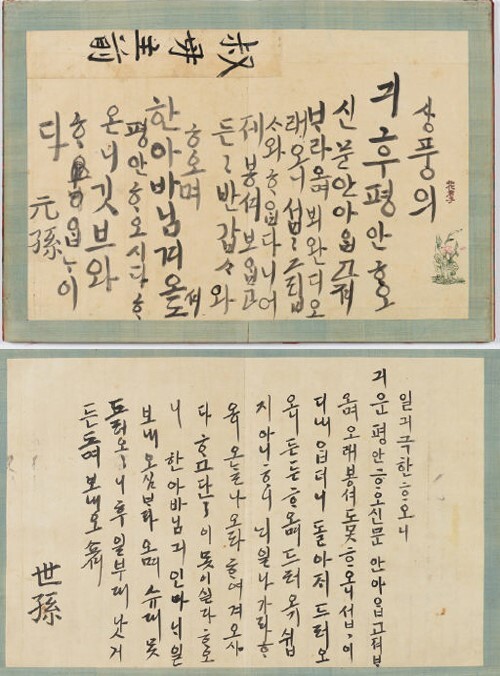 叔母主前
상풍의
긔후평안ᄒᆞ오
신 문안 아ᄋᆞᆸ고져
ᄇᆞ라오며 뵈완디 오
래오니 섭섭 그립
ᄉᆞ와 ᄒᆞᄋᆞᆸ다니 어
제 봉셔 보ᄋᆞᆸ고
든든 반갑ᄉᆞ와
ᄒᆞ오며
한아바님겨오셔도
평안ᄒᆞ오시다 ᄒᆞ
온니 깃브와
ᄒᆞᄋᆞᆸᄂᆞ이
다
元孫
일긔 극한ᄒᆞ오니
긔운 평안ᄒᆞ오신 문안 아ᄋᆞᆸ고져 ᄇᆞ라
오며 오래 봉셔도 못ᄒᆞ오니 섭섭이
디내ᄋᆞᆸ더니 돌아지 드러오
오니 든든ᄒᆞ오며 드러오기 쉽
지 아니ᄒᆞ니 ᄂᆡ일 나가라 ᄒᆞ
오니 오ᄂᆞᆯ 나오라 ᄒᆞ여 겨오시
다 ᄒᆞ고 단단이 못 이실다 ᄒᆞ오
니 한아바님긔 인마 ᄂᆡ일
보내오심 ᄇᆞ라오며 슈대 못
드려오니 후일 부대 낫거
든 드려 보내오쇼셔
世孫